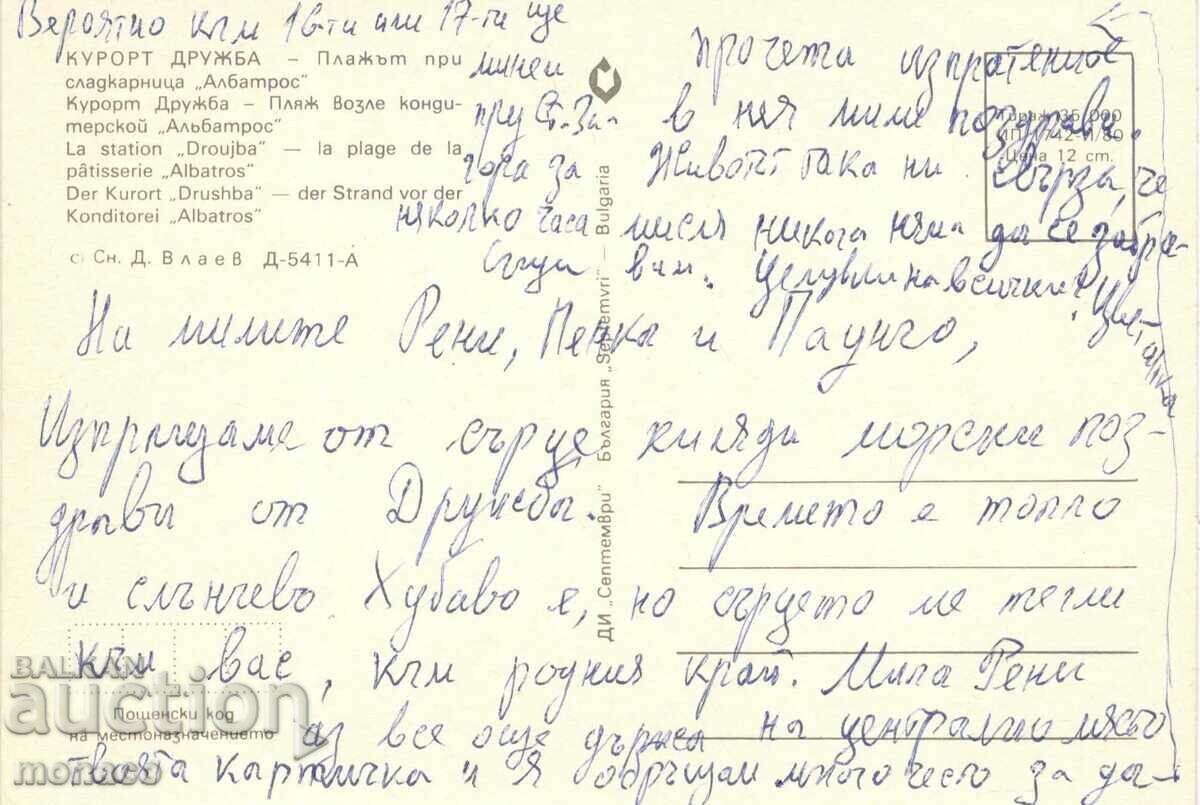 Вероятно към 16-ти или 17-ти ще
мина
през Ст. За-
гора за
няколко часа
КУРОРТ ДРУЖБА – Плажът при
сладкарница „Албатрос"
Курорт Дружба – Пляж возле конди-
терской „Альбатрос"
La station „Droujba" — la plage de la
pâtisserie „Albatros"
Der Kurort „Drushba" — der Strand vor der
Konditorei „Albatros"
Сн. Д. Влаев Д-5411-А
На милите Рени, Пенка и Паунчо,
Изпращаме от сърце хиляди морски поз-
драви от Дружба. Времето е топло
и слънчево. Хубаво е, но сърцето ме тегли
към вас, към родния край. Мила Рени
аз все още държа на централно място
твоята картичка и я обръщам много често за да
прочета изпратените
в нея мили поздрави.
Животът така ни свърза, че
мисля никога няма да се забра-
вим. Целувки на всички!
Цветанка
ДИ „Септември" България „Septemvri" — Bulgaria
Тираж 35 000
Цена 12 ст.
Пощенски код
на местоназначението
BALKAN
auction
monaco